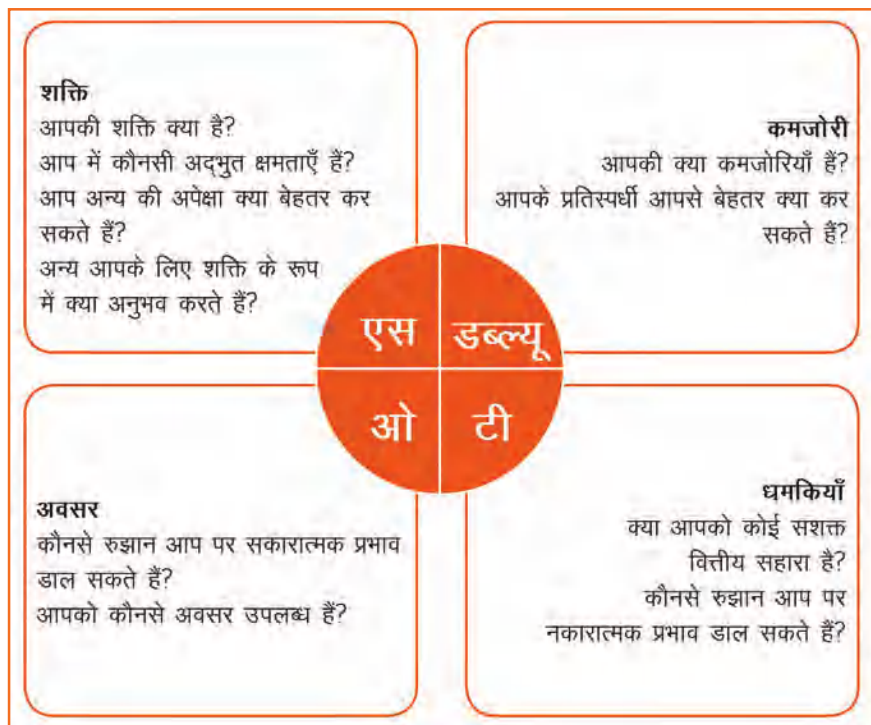 शक्ति
आपकी शक्ति क्या है?
आप में कौनसी अद्‌भुत क्षमताएँ हैं?
आप अन्य की अपेक्षा क्या बेहतर कर
सकते हैं?
अन्य आपके लिए शक्ति के रूप
में क्या अनुभव करते हैं?
कमजोरी
आपकी क्या कमजोरियाँ हैं?
आपके प्रतिस्पर्धी आपसे बेहतर क्या कर
सकते हैं?
एस
डब्ल्यू
ओ
टी
अवसर
कौनसे रुझान आप पर सकारात्मक प्रभाव
डाल सकते हैं?
आपको कौनसे अवसर उपलब्ध हैं?
धमकियाँ
क्या आपको कोई सशक्त
वित्तीय सहारा है?
कौनसे रुझान आप पर
नकारात्मक प्रभाव डाल सकते हैं?